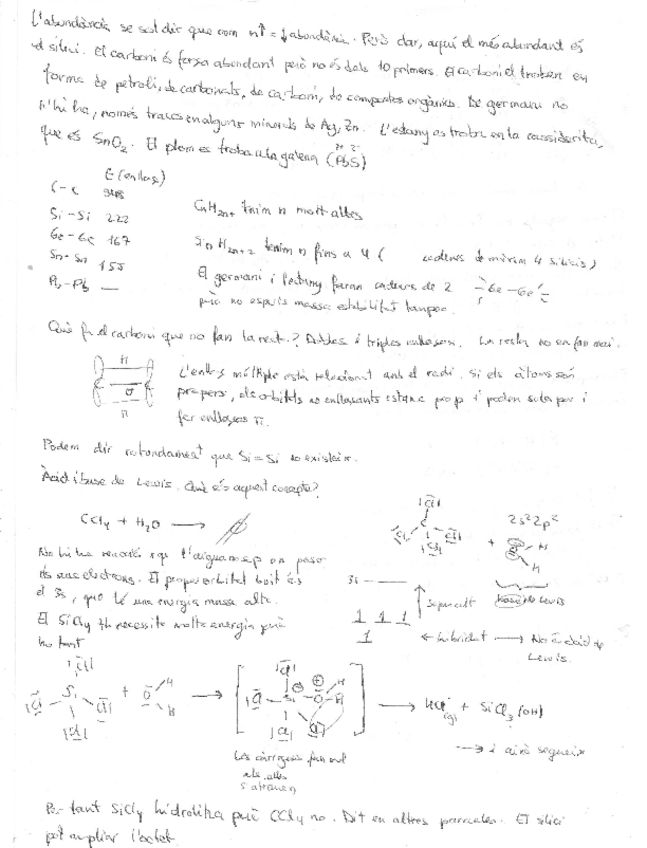 L'abundància se sol dir que com n↑ = ↓abundància. Però clar, aquí el més abundant és
el silici. El carboni és força abundant però no és dels 10 primers. El carboni el trobem en
forma de petroli, de carbonats, de carboni, de compostos orgànics. De germani no
n'hi ha, només traces en alguns minerals de Ag, Zn. L'estany es troba en la cassiterita,
que és SnO2. El plom es troba a la galena (PbS)
E (enllaç)
C-C
Si-Si 222
Ge-Ge 167
Sn-Sn 155
Pb-Pb —
CnH2n+ tenim n molt altes
SinH2n+2 tenim n fins a 4 ( cadenes de màxim 4 silicis)
El germani i l'estany faran cadenes de 2 -Ge-Ge-
però no esperis massa estabilitat tampoc.
Què fa el carboni que no fan la resta? Dobles i triples enllaços. La resta no en fan mai.
π
σ
π
L'enllaç múltiple està relacionat amb el radi. Si els àtoms són
propers, els orbitals no enllaçants estan a prop i poden solapar i
fer enllaços π.
Podem dir rotundament que Si=Si no existeix.
Àcid i base de Lewis. Què és aquest concepte?
CCl4 + H2O →
No hi ha reacció l'aigua on posar
els seus electrons. El proper orbital buit és
el 3s, que té una energia massa alta.
El SiCl4 necessita molta energia però
no tant
|Cl|
C
+
2s² 2p²
H
H
Base de Lewis
3s
1 1 1
1
← hibridat → No és àcid de
Lewis.
|Cl|
|Cl Si Cl| + O H H → [ |Cl| |Cl Si O H H |Cl| Cl ] → HCl(g) + SiCl3(OH)
→ i així segueix
Les càrregues fan que
s'atreuen
Per tant SiCl4 hidrolitza però CCl4 no. Dit en altres paraules. El silici
pot ampliar l'octet.